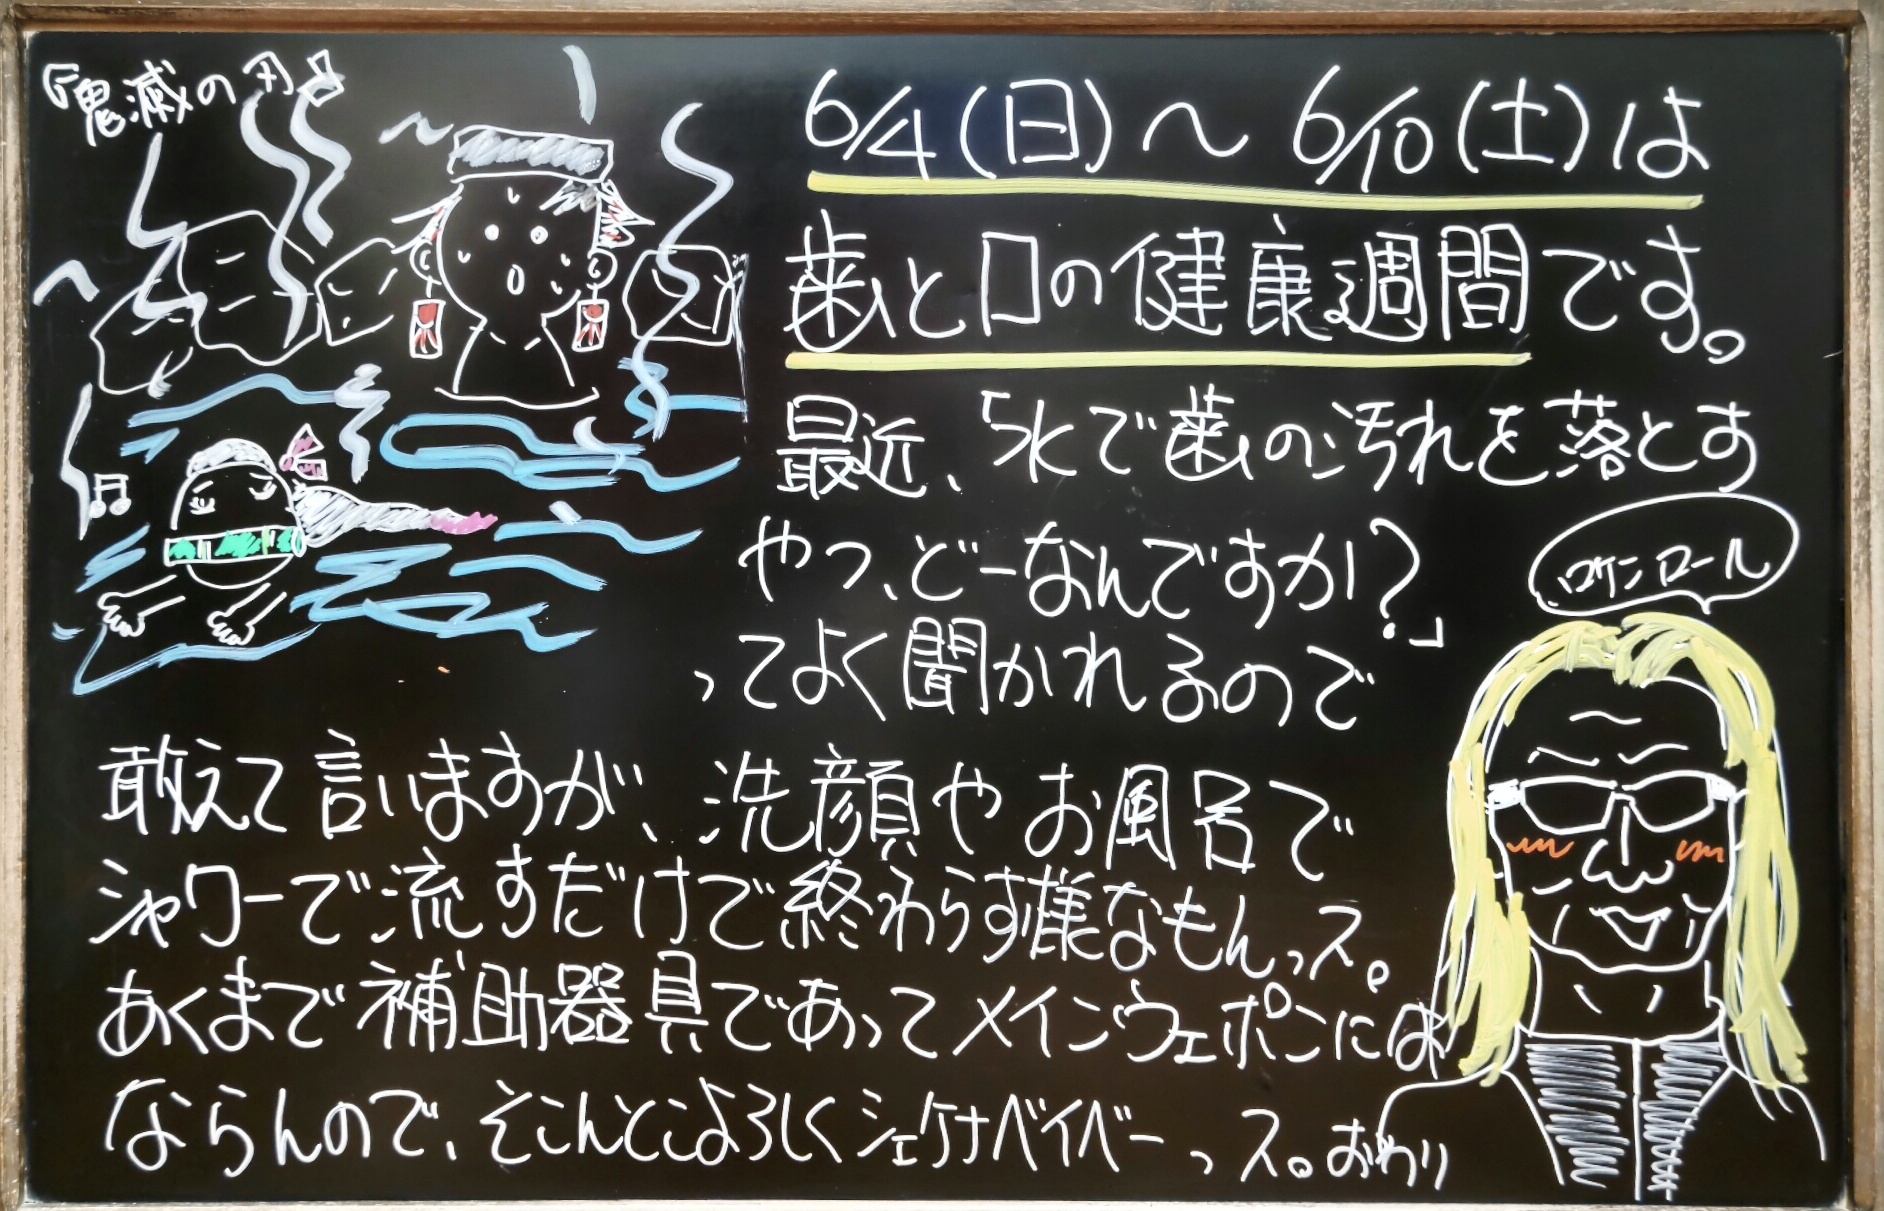 『鬼滅の刃』
6/4(日)〜6/10(土)は
歯と口の健康週間です。
最近、「水で歯の汚れを落とす
やつ、どーなんですか?」
ってよく聞かれるので
敢えて言いますが、洗顔やお風呂で
シャワーで流すだけで終わらす様なもんっス。
あくまで補助器具であってメインウェポンには
ならんので、そこんとこよろしくシェケナベイベーっス。おわり
ロケンロール